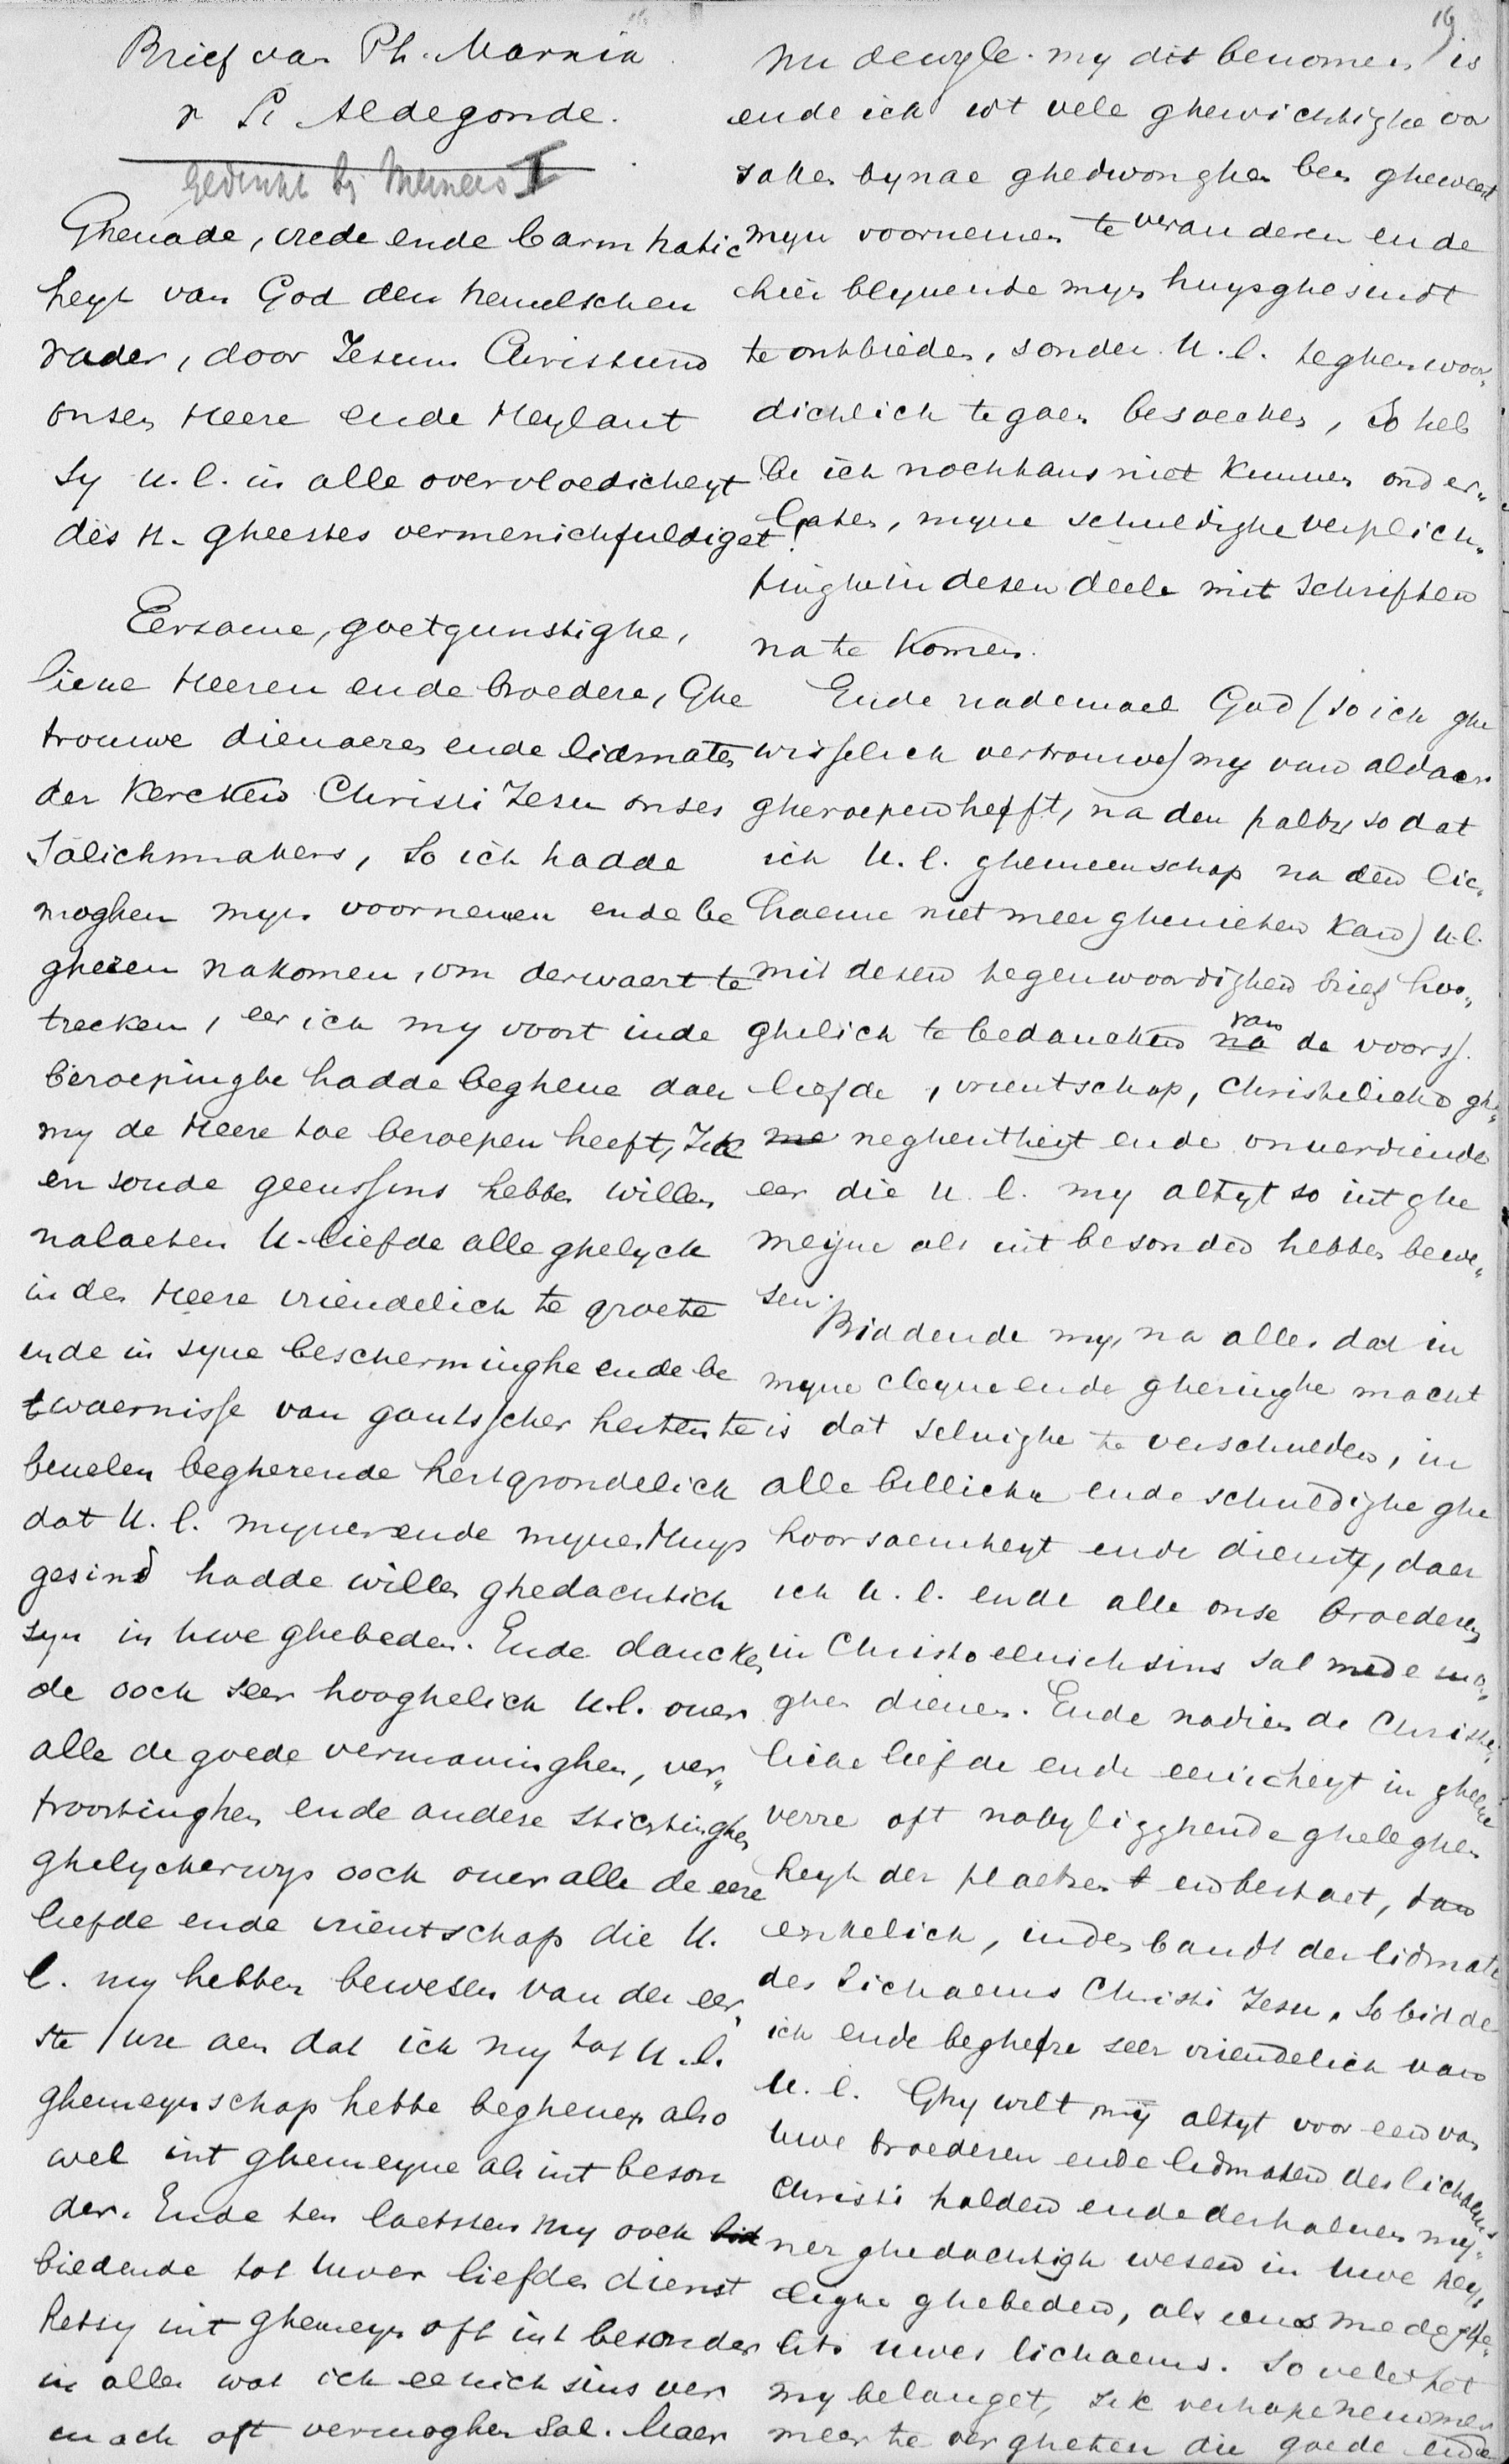 Brief van Ph. Marnix
v St Aldegonde.
gedrukt bij Meiners I
Ghenade, vrede ende barmhartic
heyt van God den hemelschen
vader, door Jesum Christum
onsen Heere ende Heylant
sy u.l. in alle overvloedicheyt
des H. gheestes vermenichfuldiget!
Eersame, goetgunstighe,
lieue Heeren ende broedere, Ghe
trouwe dienaeres ende lidmaten
der Kercken Christi Jesu onses
Salichmakers, So ich hadde
moghen myn voornemen ende be
gheren nakomen, om derwaert te
trecken, eer ich my voort inde
beroepinghe hadde begheue daer
my de Heere toe beroepen heeft, Ick
en soude geenssins hebben willen
nalaeten U. liefde alle ghelyck
in den Heere vriendelich te groete
ende in syne bescherminghe ende be
waernisse van gantsscher herten te
beuelen begherende hertgrondelick
dat U. l. myner ende mynes Huys
gesind hadde willen ghedachtich
syn in uwe ghebeden. Ende dancken
de ooch seer hooghelich U.l. ouer
alle de goede vermaninghen, ver„
troostinghen ende andere stichtinghen
ghelyckerwys ooch ouer alle de eere
liefde ende vrientschap die U.
l. my hebben bewesen van der eer„
ste ure aen dat ich my tot U.l.
ghemeynschap hebbe begheuen also
wel int ghemeyne als int beson
der. Ende ten laetsten my ooch
biedende tot uwer liefden dienst
hetsy int ghemeyn oft int besonder
in allen wat ich eenich sins ver
mach oft vermoghen sal. Maer
19
nu dewyle my dit benomen is
ende ich wt vele ghewichtighe oor
saken bynae ghedwonghen ben gheweest
myn voornemen te veranderen ende
hier blyuende myn huysghesindt
te ontbieden, sonder U.l. teghenwoor„
dichlich te gaen besoecken, so heb
be ich nochtans niet kunnen onder„
laten, myne schuldighe verplich„
tinghe in desen deele mit schriften
na te komen.
Ende nademael God (so ich ghe
wisselich vertrouwe) my van aldaer
gheroepen hefft, na den
so dat
ich U.l. ghemeenschap na den lic„
haeme niet meer ghenieten kan) u.l.
mit desen tegenwoordighen brief hoo„
ghelich te bedancken na van de voorss.
liefde, vrientschap, christelicke ghe„
me neghentheyt ende onuerdiende
eer die u.l. my altyt so int ghe
meijne als int besonder hebben bewe„
sen.
Biddende my, na allen dat in
myne cleyne ende gheringhe macht
is dat seluighe te verschulden, in
alle billicke ende schuldighe ghe
hoorsaemheyt ende dienst, daer
ich U.l. ende alle onse broederen
in Christo eenichsins sal mede mo„
ghen dienen. Ende nadien de Christe„
licke liefde ende eenicheyt in gheene
verre oft nabyligghende gheleghen
heyt der plaetsen en bestaet, dan
enkelich, inden bandt der lidmaten
des lichaems Christi Jesu, So bidde
ich ende beghere seer vriendelich van
U.l. Ghy wilt mij altyt voor een van
uwe broederen ende lidmaten des lichaems
Christi halden ende derhaluen my„
ner ghedachtigh wesen in uwe hey„
lighe ghebeden, als eens medeghe„
lits uwes lichaems. So vele het
my belanget, Ick verhape nemmer
meer te vergheten die goede ende